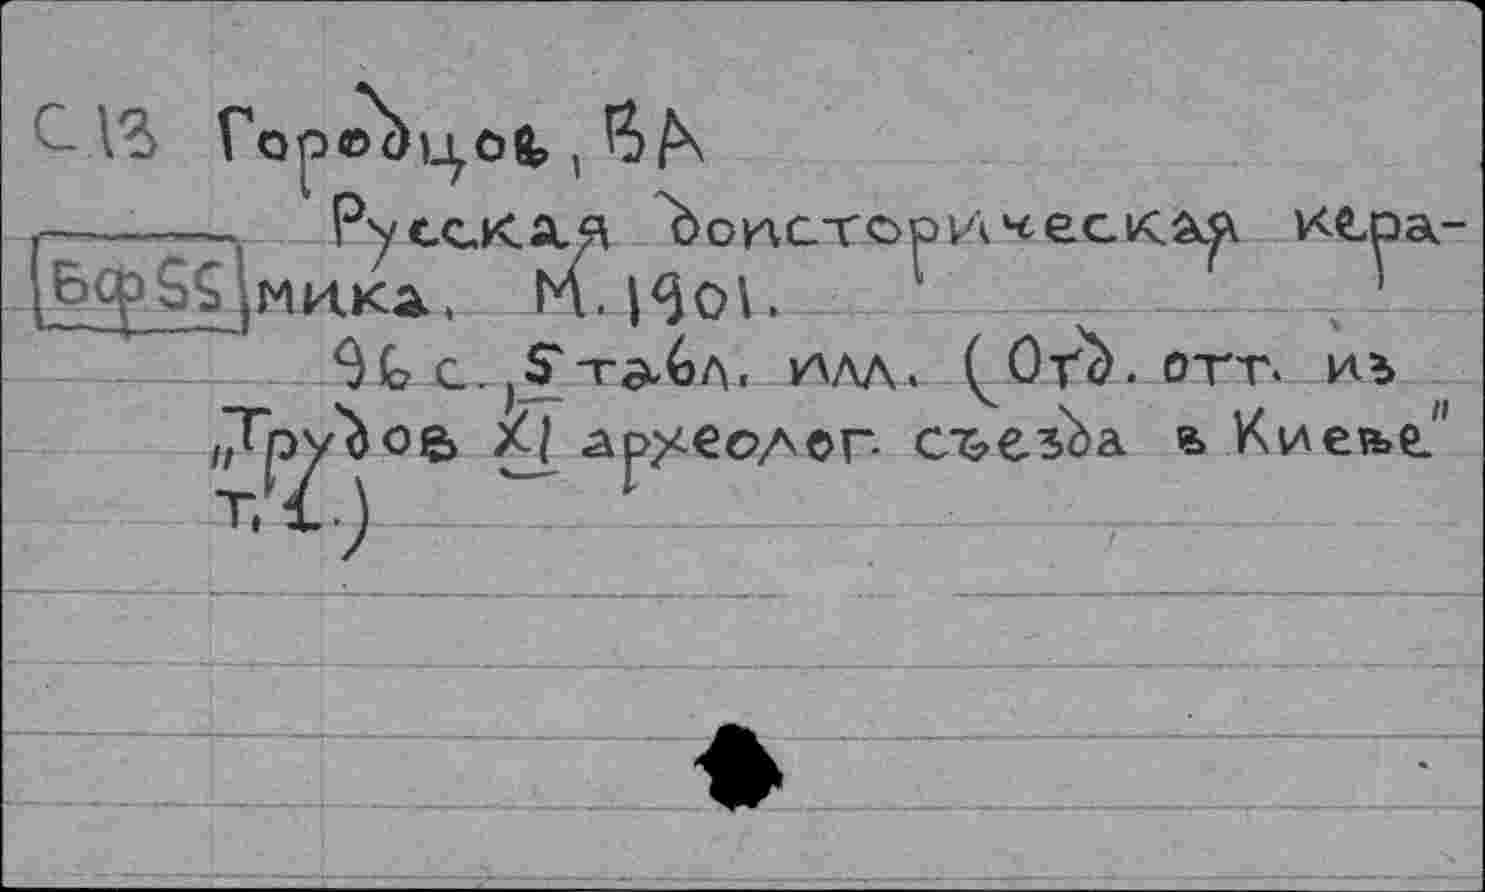 С13 Городцов, ВА
Русская доисторическая кера-
БфSS мика. М. 1901.
96 с., 5 табл. илл. (Отд. отт. из
„Трудов XI археолог. съезда в Киеве"
т. 1.)